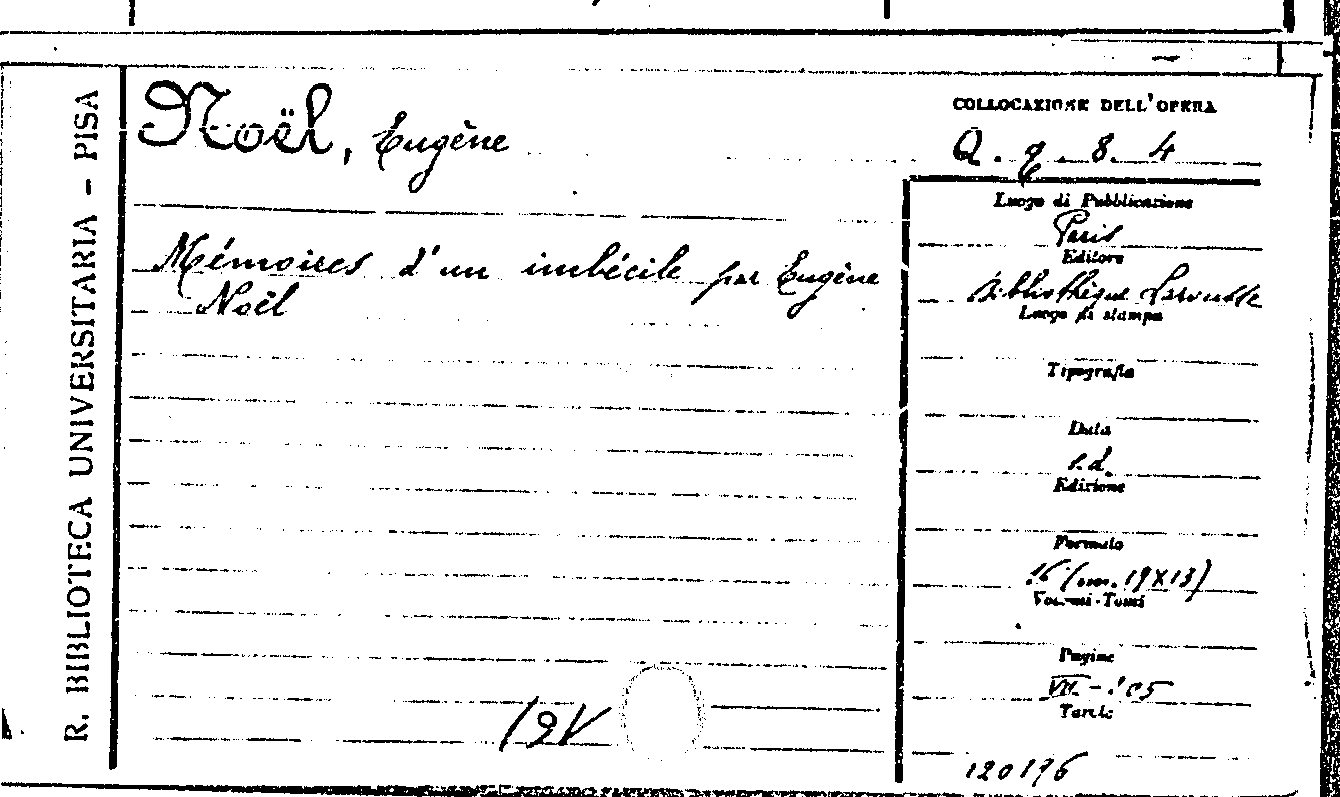 R. BIBLIOTECA UNIVERSITARIA - PISA
Noël, Eugène
Mémoires d'un imbécile par Eugène
Noël
COLLOCAZIONE DELL'OPERA
Q. q. 8. 4
Luogo di Pubblicazione
Paris
Editore
Bibliothèque Larousse
Luogo di stampa
Tipografia
Data
s.d.
Edizione
Formato
16 (cm. 19X13)
Volumi-Tomi
Pagine
Tavole